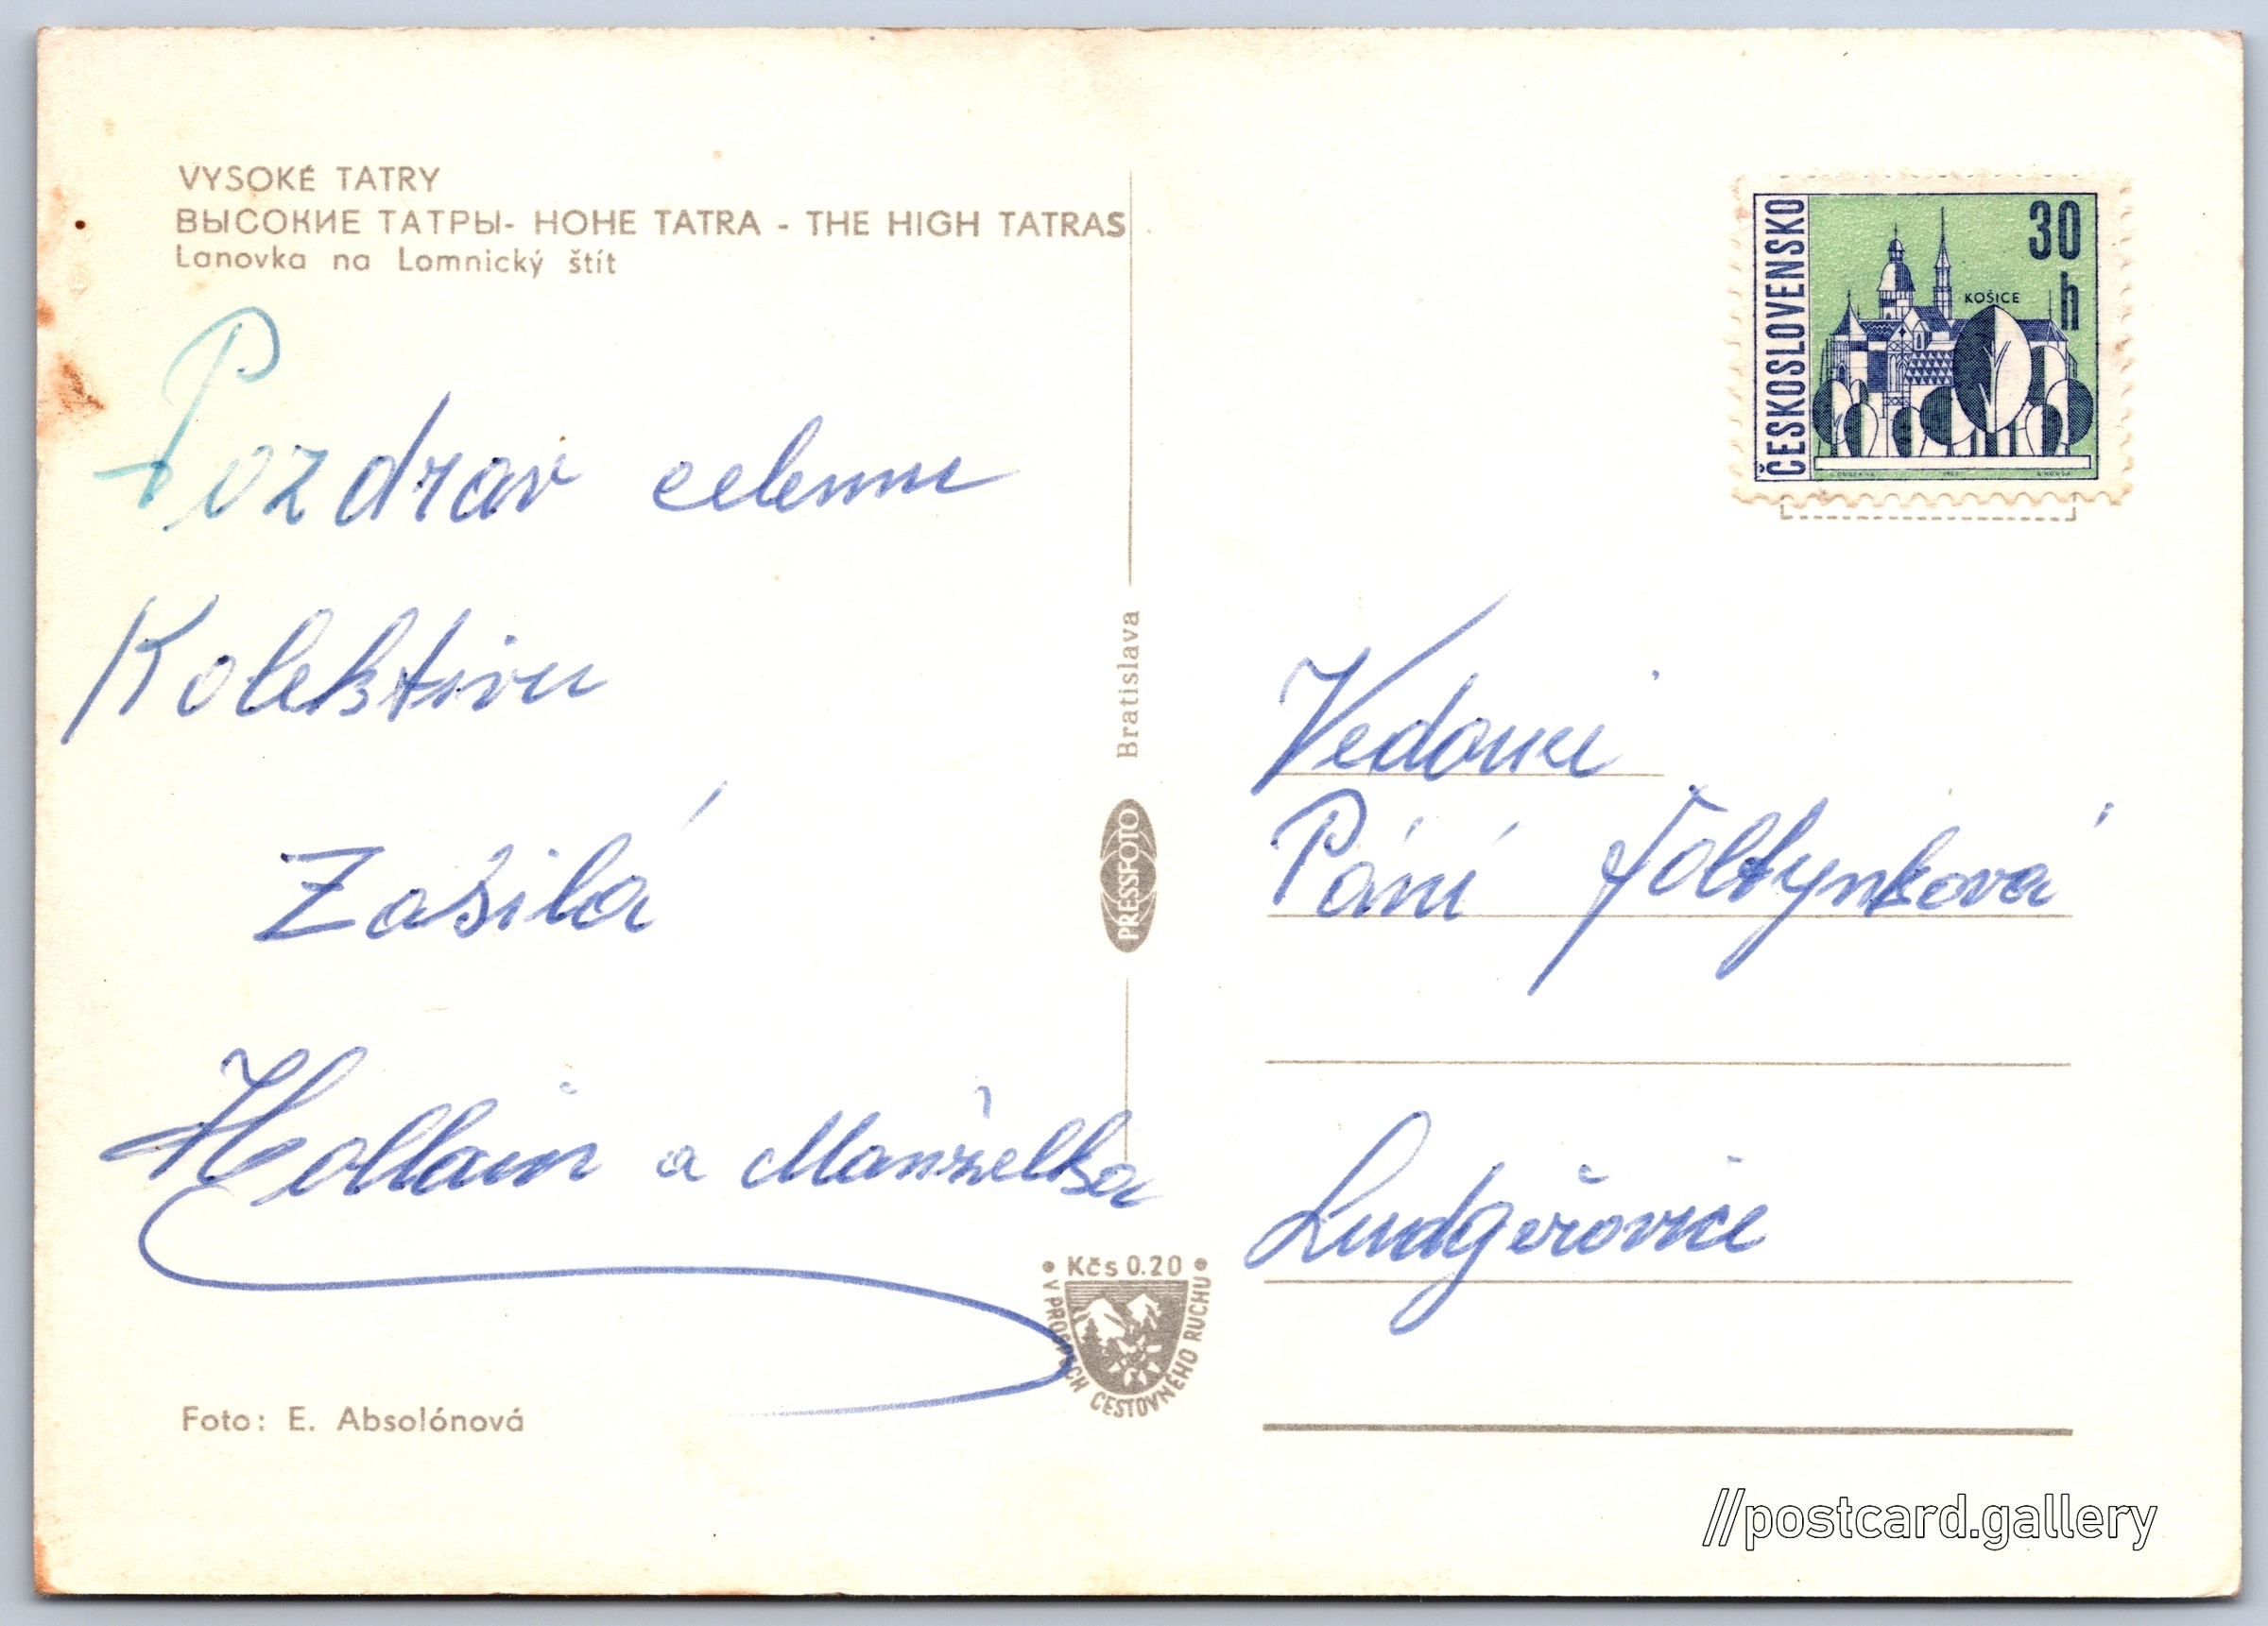 VYSOKÉ TATRY
ВЫСОКИЕ ТАТРЫ- HOHE TATRA - THE HIGH TATRAS
Lanovka na Lomnický štít
Pozdrav celemu
Kolektivu
Zasilá
a Manželka
Foto: E. Absolónová
Bratislava
PRESSFOTO
Kčs 0.20
V PROSPĚCH CESTOVNÉHO RUCHU
ČESKOSLOVENSKO
30
h
KOŠICE
Vedouci
Páni Foltynková
Ludgeřovice
//postcard.gallery